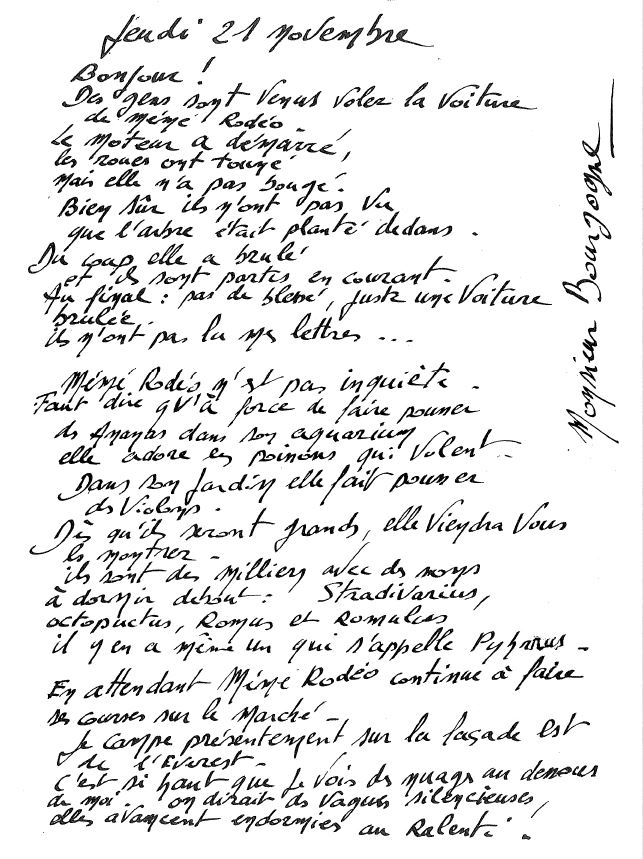 Jeudi 21 novembre
Bonjour !
Des gens sont venus voler la voiture
de Mémé Rodéo.
Le moteur a démarré,
les roues ont tourné
mais elle n'a pas bougé.
Bien sûr ils n'ont pas vu
que l'arbre était planté dedans.
Du coup elle a brulé
et ils sont partis en courant.
Au final : pas de blessé, juste une voiture
brulée.
ils n'ont pas lu mes lettres ...
Mémé Rodéo n'est pas inquiète.
Faut dire qu'à force de faire pousser
des Ananas dans son aquarium
elle adore les poissons qui volent.
Dans son Jardin elle fait pousser
des Violons.
Dès qu'ils seront grands, elle viendra vous
les montrer.
ils sont des milliers avec des noms
à dormir debout : Stradivarius,
octopuctus, Romus et Romulus
il y en a même un qui s'appelle
En attendant Mémé Rodéo continue à faire
ses courses sur le marché.
Je campe présentement sur la façade est
de l'Everest.
C'est si haut que je vois des nuages au dessous
de moi. on dirait des vagues silencieuses,
elles avancent endormies au ralenti.
Monsieur Bourgogne